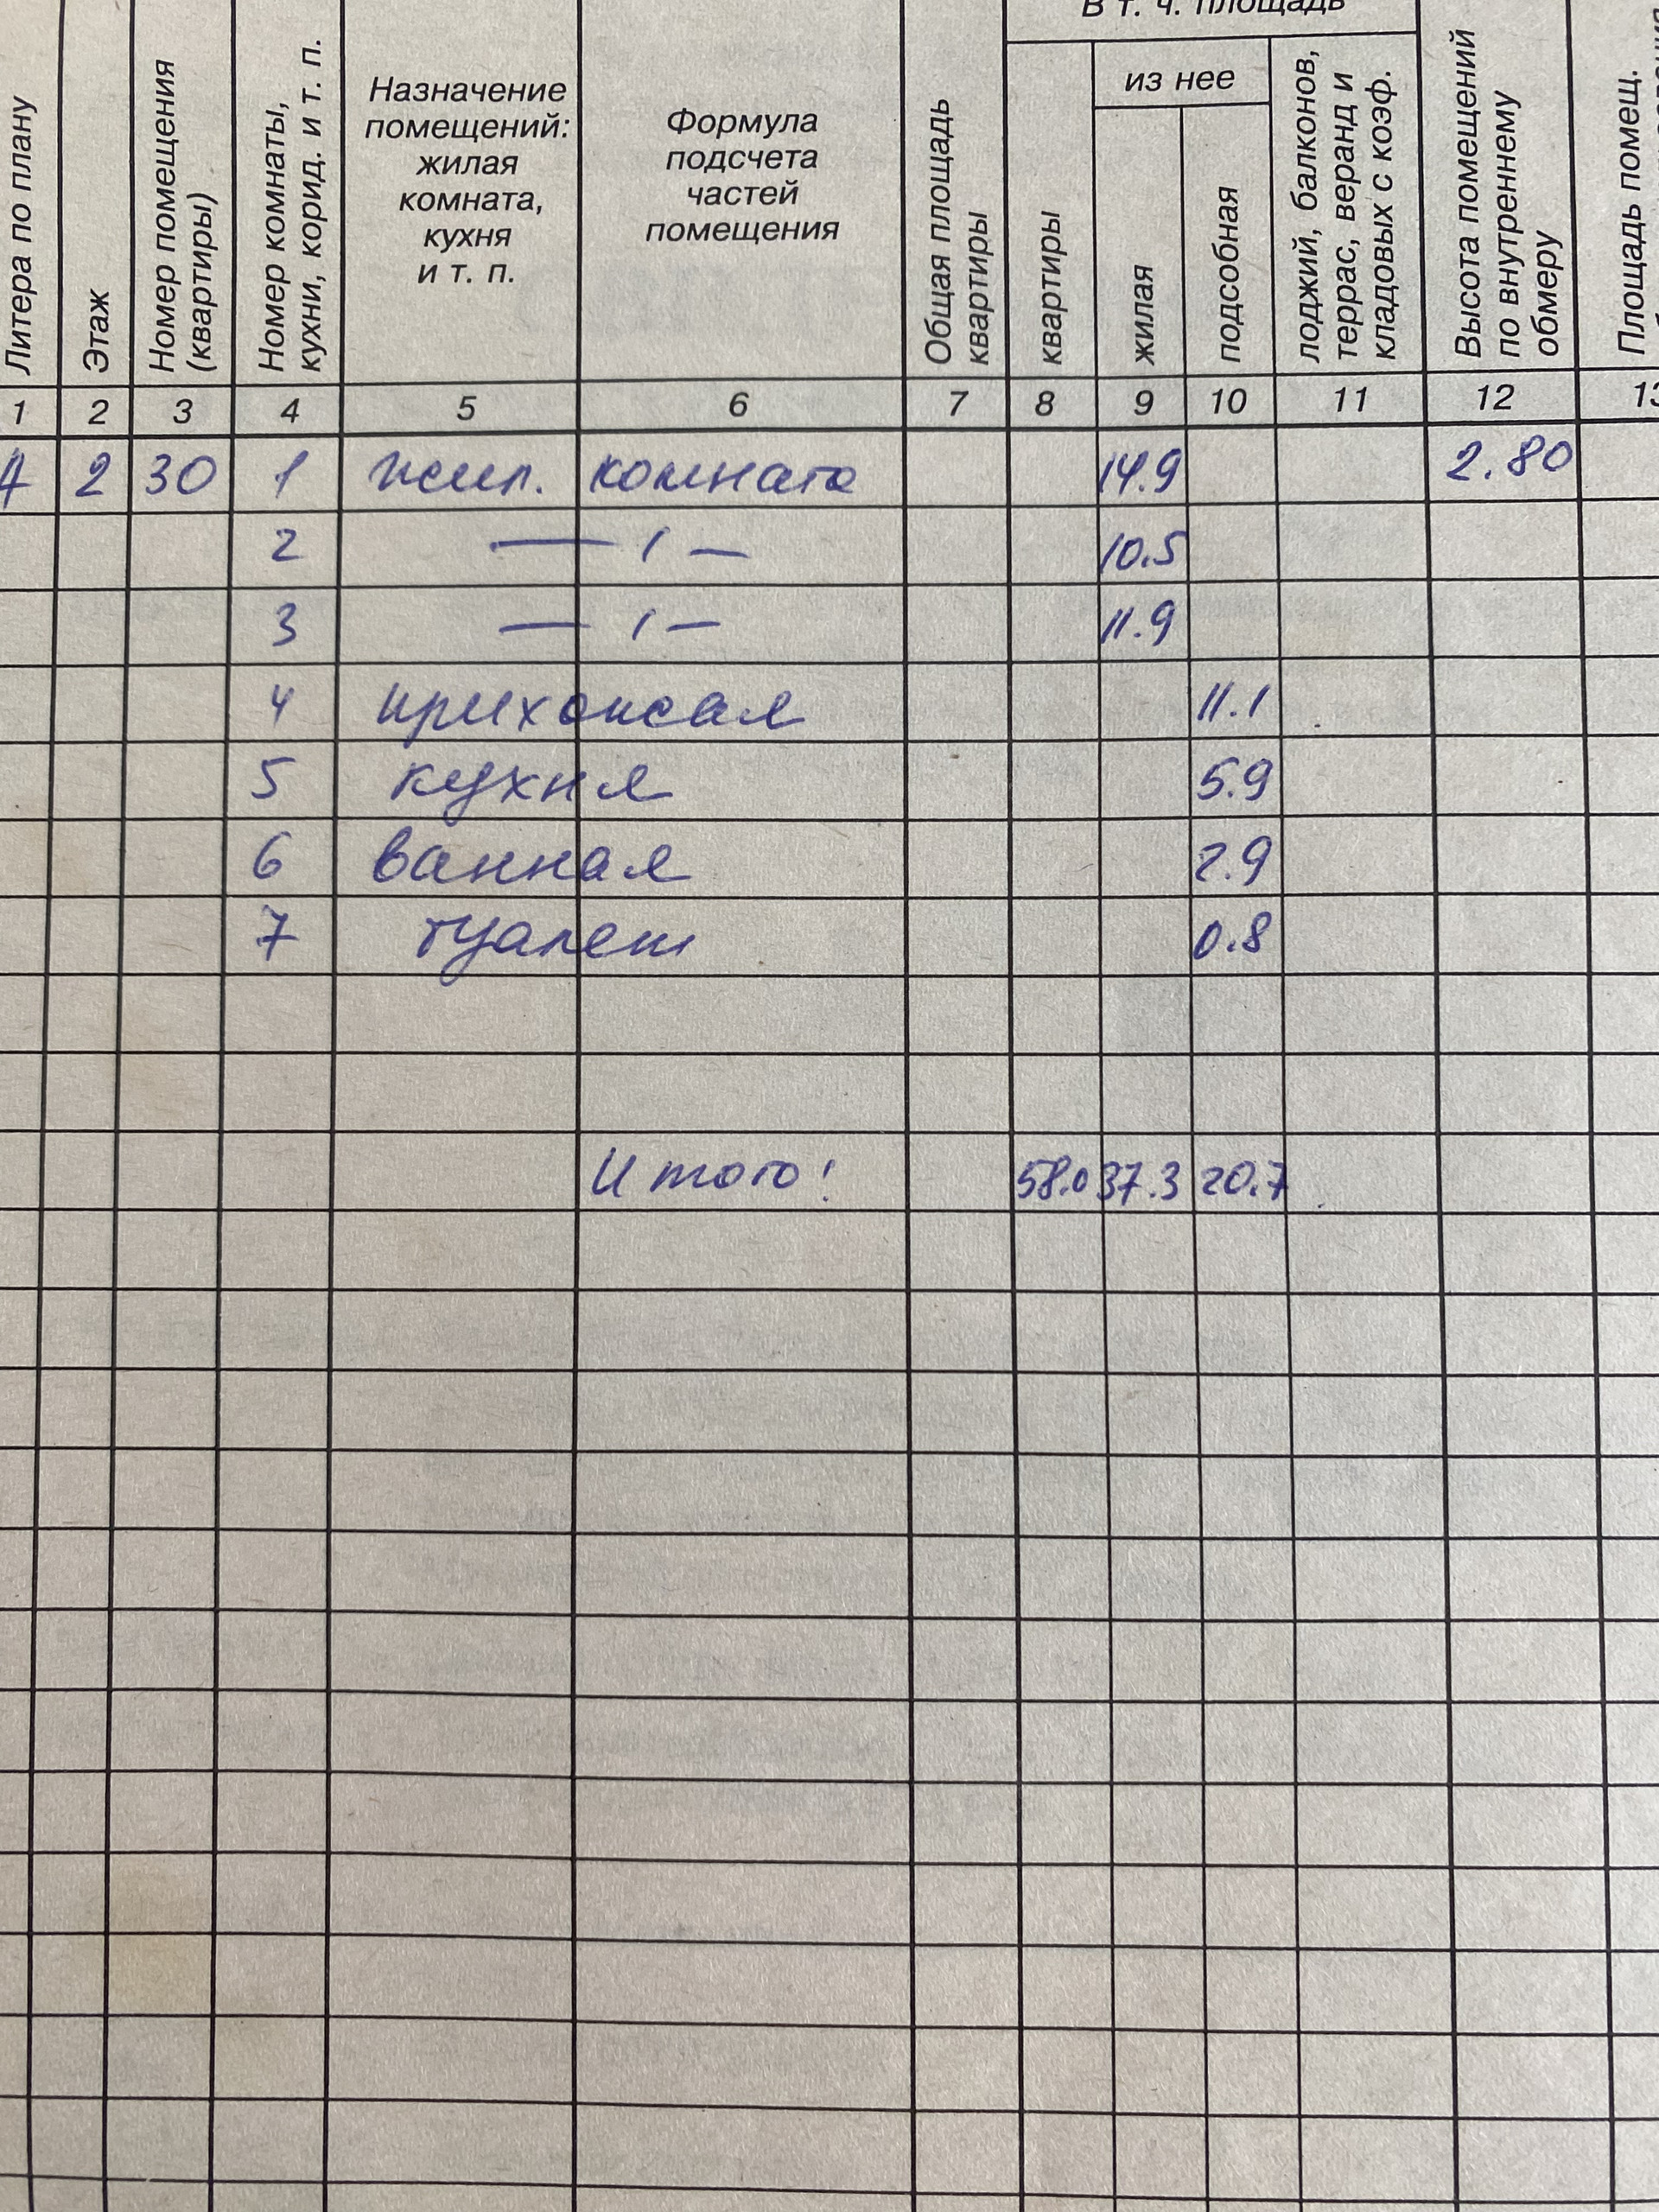 В т. ч. площадь
из нее
Литера по плану
Этаж
Номер помещения
(квартиры)
Номер комнаты,
кухни, корид. и т. п.
Назначение
помещений:
жилая
комната,
кухня
и т. п.
Формула
подсчета
частей
помещения
Общая площадь
квартиры
квартиры
жилая
подсобная
лоджий, балконов,
террас, веранд и
кладовых с коэф.
Высота помещений
по внутреннему
обмеру
Площадь помещ.
1 2 3 4 5 6 7 8 9 10 11 12 13
А 2 30 1 жил. комната 14.9 2.80
2 — ı — 10.5
3 — ı — 11.9
4 прихожая 11.1
5 кухня 5.9
6 ванная 2.9
7 туалет 0.8
Итого: 58.0 37.3 20.7